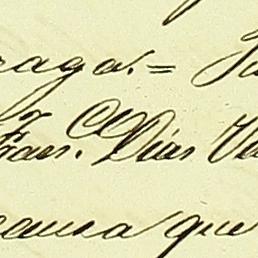 raga. =
Fran.co Dias Va
causa que